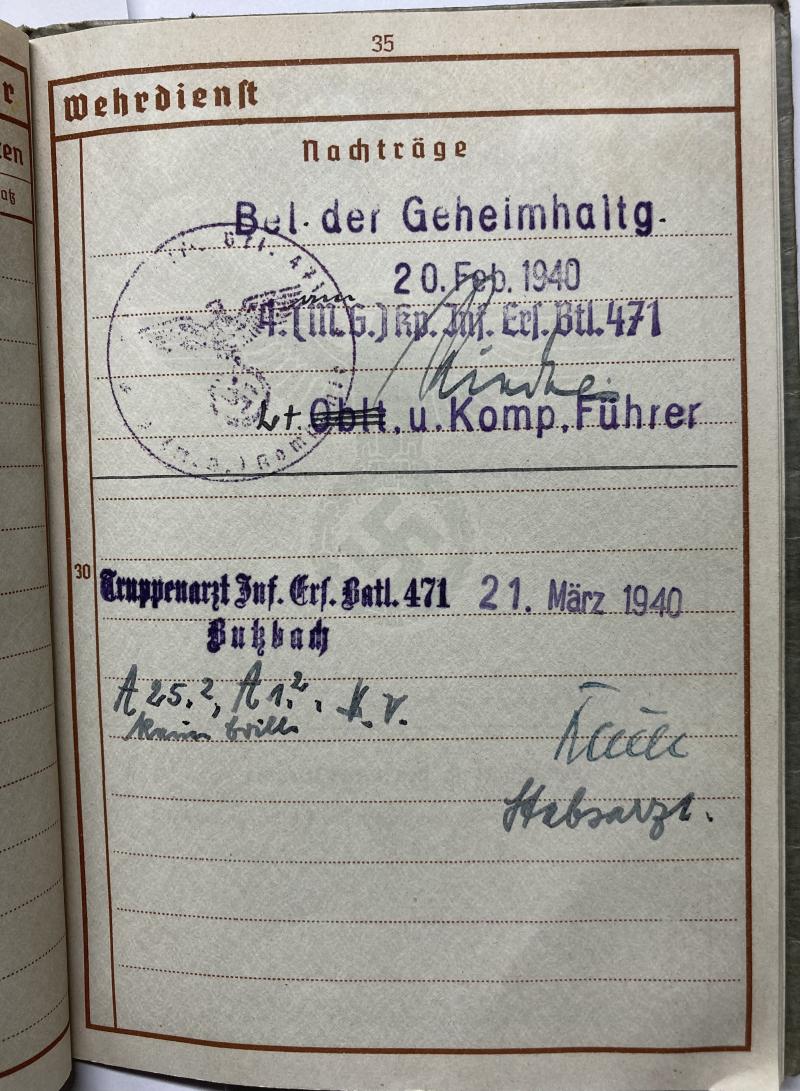 35
Wehrdienst
Nachträge
Bel. der Geheimhaltg.
20. Feb. 1940
4. (M.G.) Kp. Inf. Ers. Btl. 471
Lt. Oblt. u. Komp. Führer
30
Truppenarzt Inf. Ers. Batl. 471 21. März 1940
Butzbach
A 25.2, A 1.2. k.v.
keine Brille
Stabsarzt.